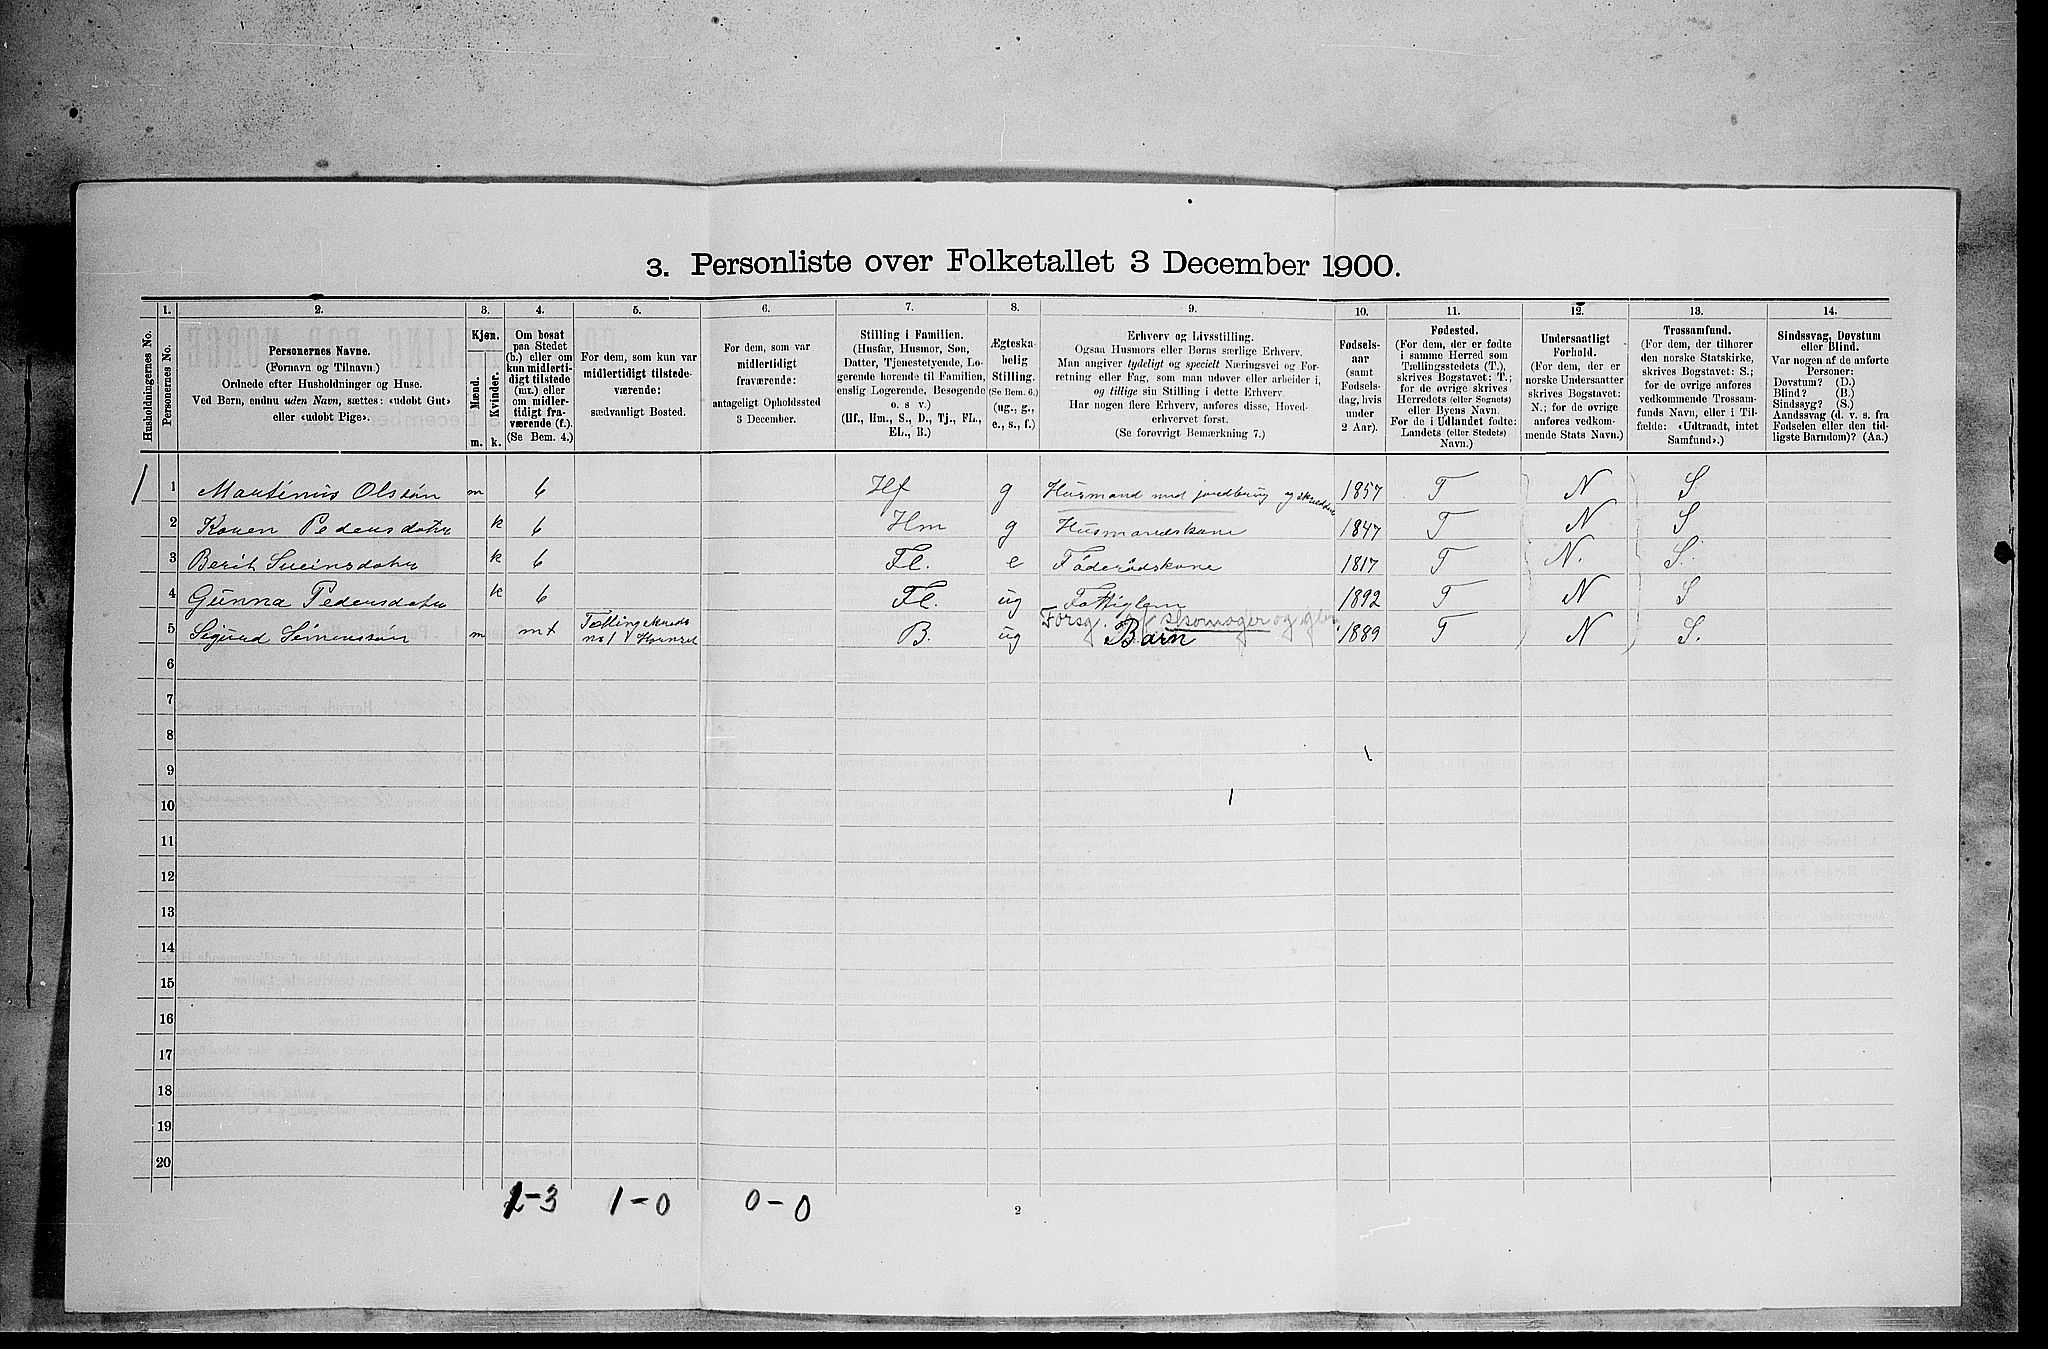 3. Personliste over Folketallet 3 December 1900.
Husholdningernes No.
1.
Personernes No.
2.
Personernes Navne.
(Fornavn og Tilnavn.)
Ordnede efter Husholdninger og Huse.
Ved Børn, endnu uden Navn, sættes: «udobt Gut»
eller «udobt Pige».
3.
Kjøn.
Mænd.
Kvinder.
m.
k.
4.
Om bosat
paa Stedet
(b.) eller om
kun midlerti-
digt tilstede
(mt.) eller
om midler-
tidigt fra-
værende (f.).
(Se Bem. 4.)
5.
For dem, som kun var
midlertidigt tilstede-
værende:
sædvanligt Bosted.
6.
For dem, som var
midlertidigt
fraværende:
antageligt Opholdssted
3 December.
7.
Stilling i Familien.
(Husfar, Husmor, Søn,
Datter, Tjenestetyende, Lo-
gerende hørende til Familien,
enslig Logerende, Besøgende
o. s. v.)
(Hf., Hm., S., D., Tj., FL.,
EL., B.)
8.
Ægteska-
belig
Stilling.
(Se Bem. 6.)
(ug., g.,
e., s., f.)
9.
Erhverv og Livsstilling.
Ogsaa Husmors eller Børns særlige Erhverv.
Man angiver tydeligt og specielt Næringsvei og For-
retning eller Fag, som man udøver eller arbeider i,
og tillige sin Stilling i dette Erhverv.
Har nogen flere Erhverv, anføres disse, Hoved-
erhvervet først.
(Se forøvrigt Bemærkning 7.)
10.
Fødsels-
aar
(samt
Fødsels-
dag, hvis
under
2 Aar).
11.
Fødested.
(For dem, der er fødte
i samme Herred som
Tællingsstedets (T.),
skrives Bogstavet: T.;
for de øvrige skrives
Herredets (eller Sognets)
eller Byens Navn.
For de i Udlandet fødte:
Landets (eller Stedets)
Navn.)
12.
Undersaatligt
Forhold.
(For dem, der er
norske Undersaatter
skrives Bogstavet:
N.; for de øvrige
anføres vedkom-
mende Stats Navn.)
13.
Trossamfund.
(For dem, der tilhører
den norske Statskirke,
skrives Bogstavet: S.;
for de øvrige anføres
vedkommende Trossam-
funds Navn, eller i Til-
fælde: «Udtraadt, intet
Samfund».)
14.
Sindssvag, Døvstum
eller Blind.
Var nogen af de anførte
Personer:
Døvstum? (D.)
Blind? (B.)
Sindssyg? (S.)
Aandssvag (d. v. s. fra
Fødselen eller den tid-
ligste Barndom)? (Aa.)
1 1 Martinus Olsøn m b Hf g Husmand med jordbrug og skrædder 1857 T N S
2 Karen Pedersdatter k b Hm g Husmandskone 1847 T N S
3 Berit Sveinsdatter k b Fl. e Føderådskone 1817 T N. S.
4 Gunna Pedersdatter k b Fl. ug Fattiglem 1892 T N S
Forsg. af skomager og
5 Sigurd Simensøn m mt Tællingskreds no 1 B. ug Barn 1889 T N S.
6
7
8
9
10
11
12
13
14
15
16
17
18
19
20
1-3 1-0 0-0
2